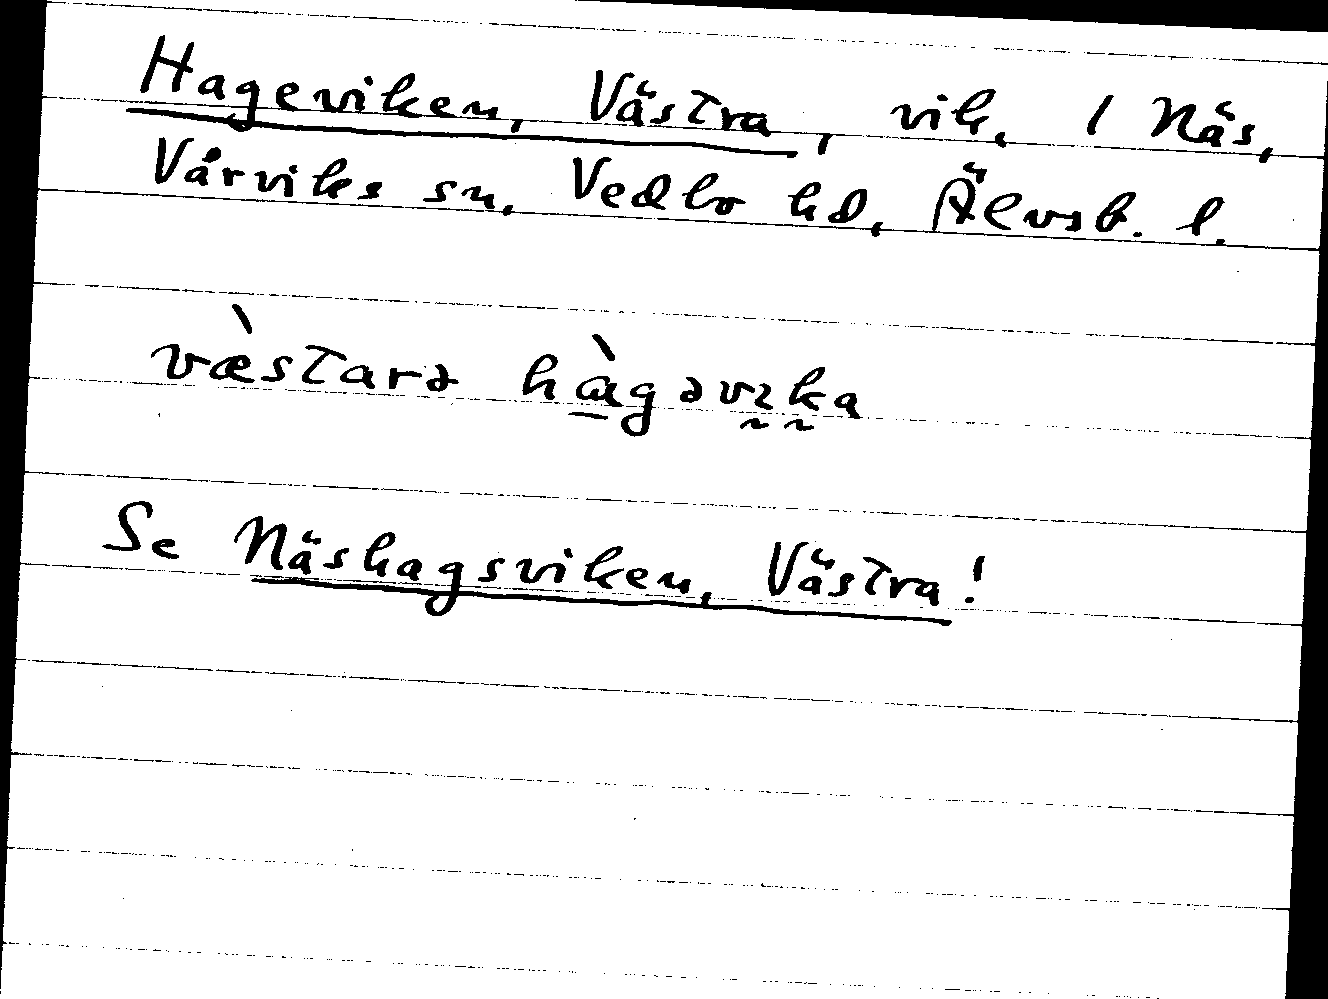 Hageviken, Västra, vik, 1 Näs,
Vårviks sn, Vedbo hd, Älvsb. l.
væ̀starə hàgəvıka
Se Näshagsviken, Västra!